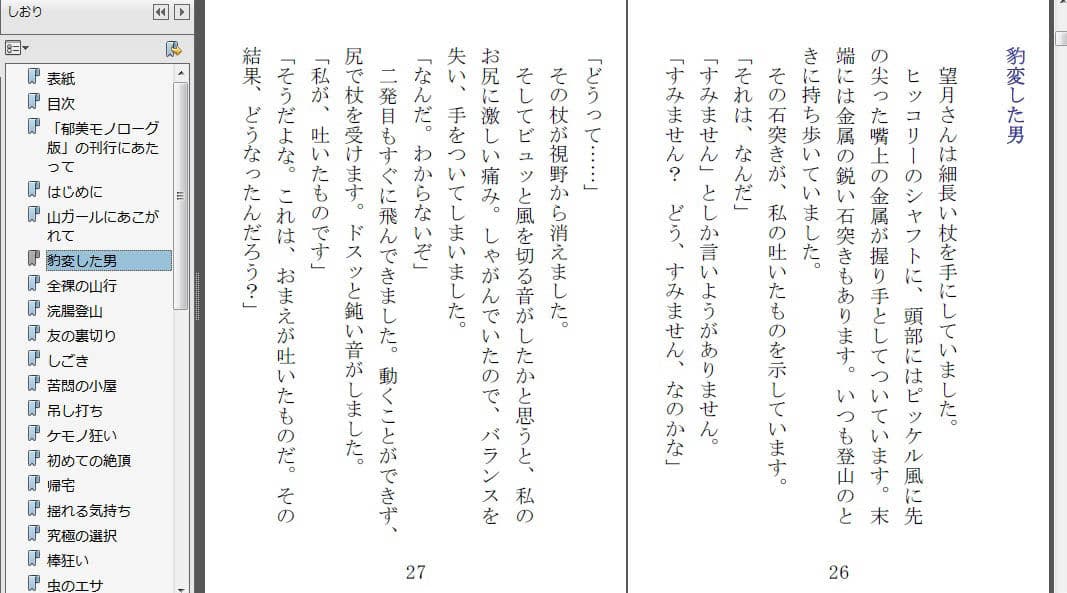 しおり
表紙
目次
「郁美モノローグ
版」の刊行にあた
って
はじめに
山ガールにあこが
れて
豹変した男
全裸の山行
浣腸登山
友の裏切り
しごき
苦悶の小屋
吊し打ち
ケモノ狂い
初めての絶頂
帰宅
揺れる気持ち
究極の選択
棒狂い
虫のエサ
豹変した男
望月さんは細長い杖を手にしていました。
ヒッコリーのシャフトに、頭部にはピッケル風に先
の尖った嘴上の金属が握り手としてついています。末
端には金属の鋭い石突きもあります。いつも登山のと
きに持ち歩いていました。
その石突きが、私の吐いたものを示しています。
「それは、なんだ」
「すみません」としか言いようがありません。
「すみません? どう、すみません、なのかな」
26
「どうって……」
その杖が視野から消えました。
そしてビュッと風を切る音がしたかと思うと、私の
お尻に激しい痛み。しゃがんでいたので、バランスを
失い、手をついてしまいました。
「なんだ。わからないぞ」
二発目もすぐに飛んできました。動くことができず、
尻で杖を受けます。ドスッと鈍い音がしました。
「私が、吐いたものです」
「そうだよな。これは、おまえが吐いたものだ。その
結果、どうなったんだろう?」
27